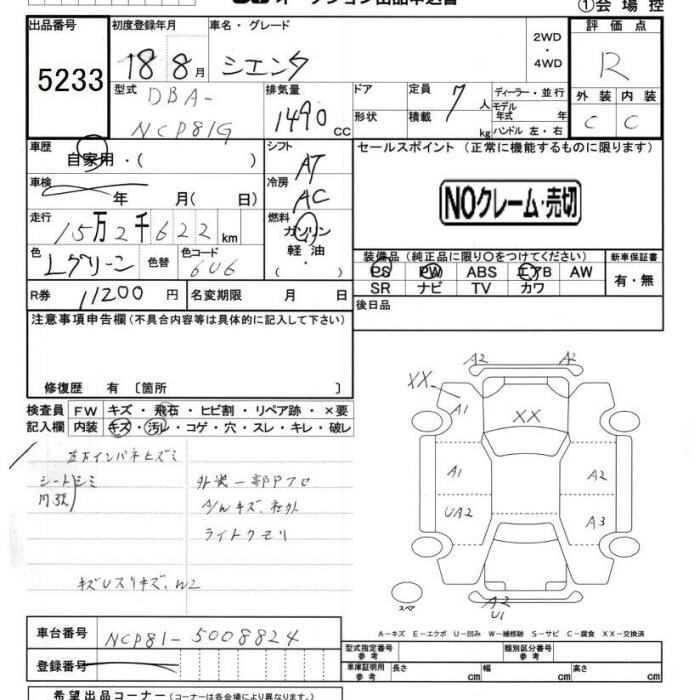 オークション出品申込書
①会場控
出品番号
5233
初度登録年月
18 8月
車名・グレード
シエンタ
2WD
・
4WD
評価点
R
外装 内装
C C
型式
DBA-
NCP81G
排気量
1490 cc
ドア
形状
定員 7人
積載 kg
ディーラー・並行
モデル年式 年
ハンドル 左・右
車歴
自家用・( )
車検
年 月( 日)
走行
15万2千622km
色
Lグリーン
色替
色コード
6U6
シフト
AT
冷房
AC
燃料
ガソリン
軽油・
( )
セールスポイント (正常に機能するものに限ります)
NOクレーム・売切
装備品(純正品に限り〇をつけてください)
PS PW ABS エアB AW
SR ナビ TV カワ
新車保証書
有・無
R券 11200円
名変期限 月 日
後日品
注意事項申告欄(不具合内容等は具体的に記入して下さい)
修復歴 有 〔箇所 〕
検査員
記入欄
FW キズ・飛石・ヒビ割・リペア跡・×要
内装 キズ・汚レ・コゲ・穴・スレ・キレ・破レ
左右インパネヒズミ
シートシミ
外装一部アフセ
A/Wキズ、社外
ライトクモリ
キズUスリキズ、W2
A2 A2
XX
A1
XX
A1 A2
UA2 A3
A2
U1
スペア
A-キズ E-エクボ U-凹み W-補修跡 S-サビ C-腐食 XX-交換済
車台番号
NCP81-5008824
登録番号
型式指定番号
参考
類別区分番号
参考
車庫証明用
参考
長さ cm 幅 cm 高さ cm
希望出品コーナー(コーナーは各会場により異なります。)